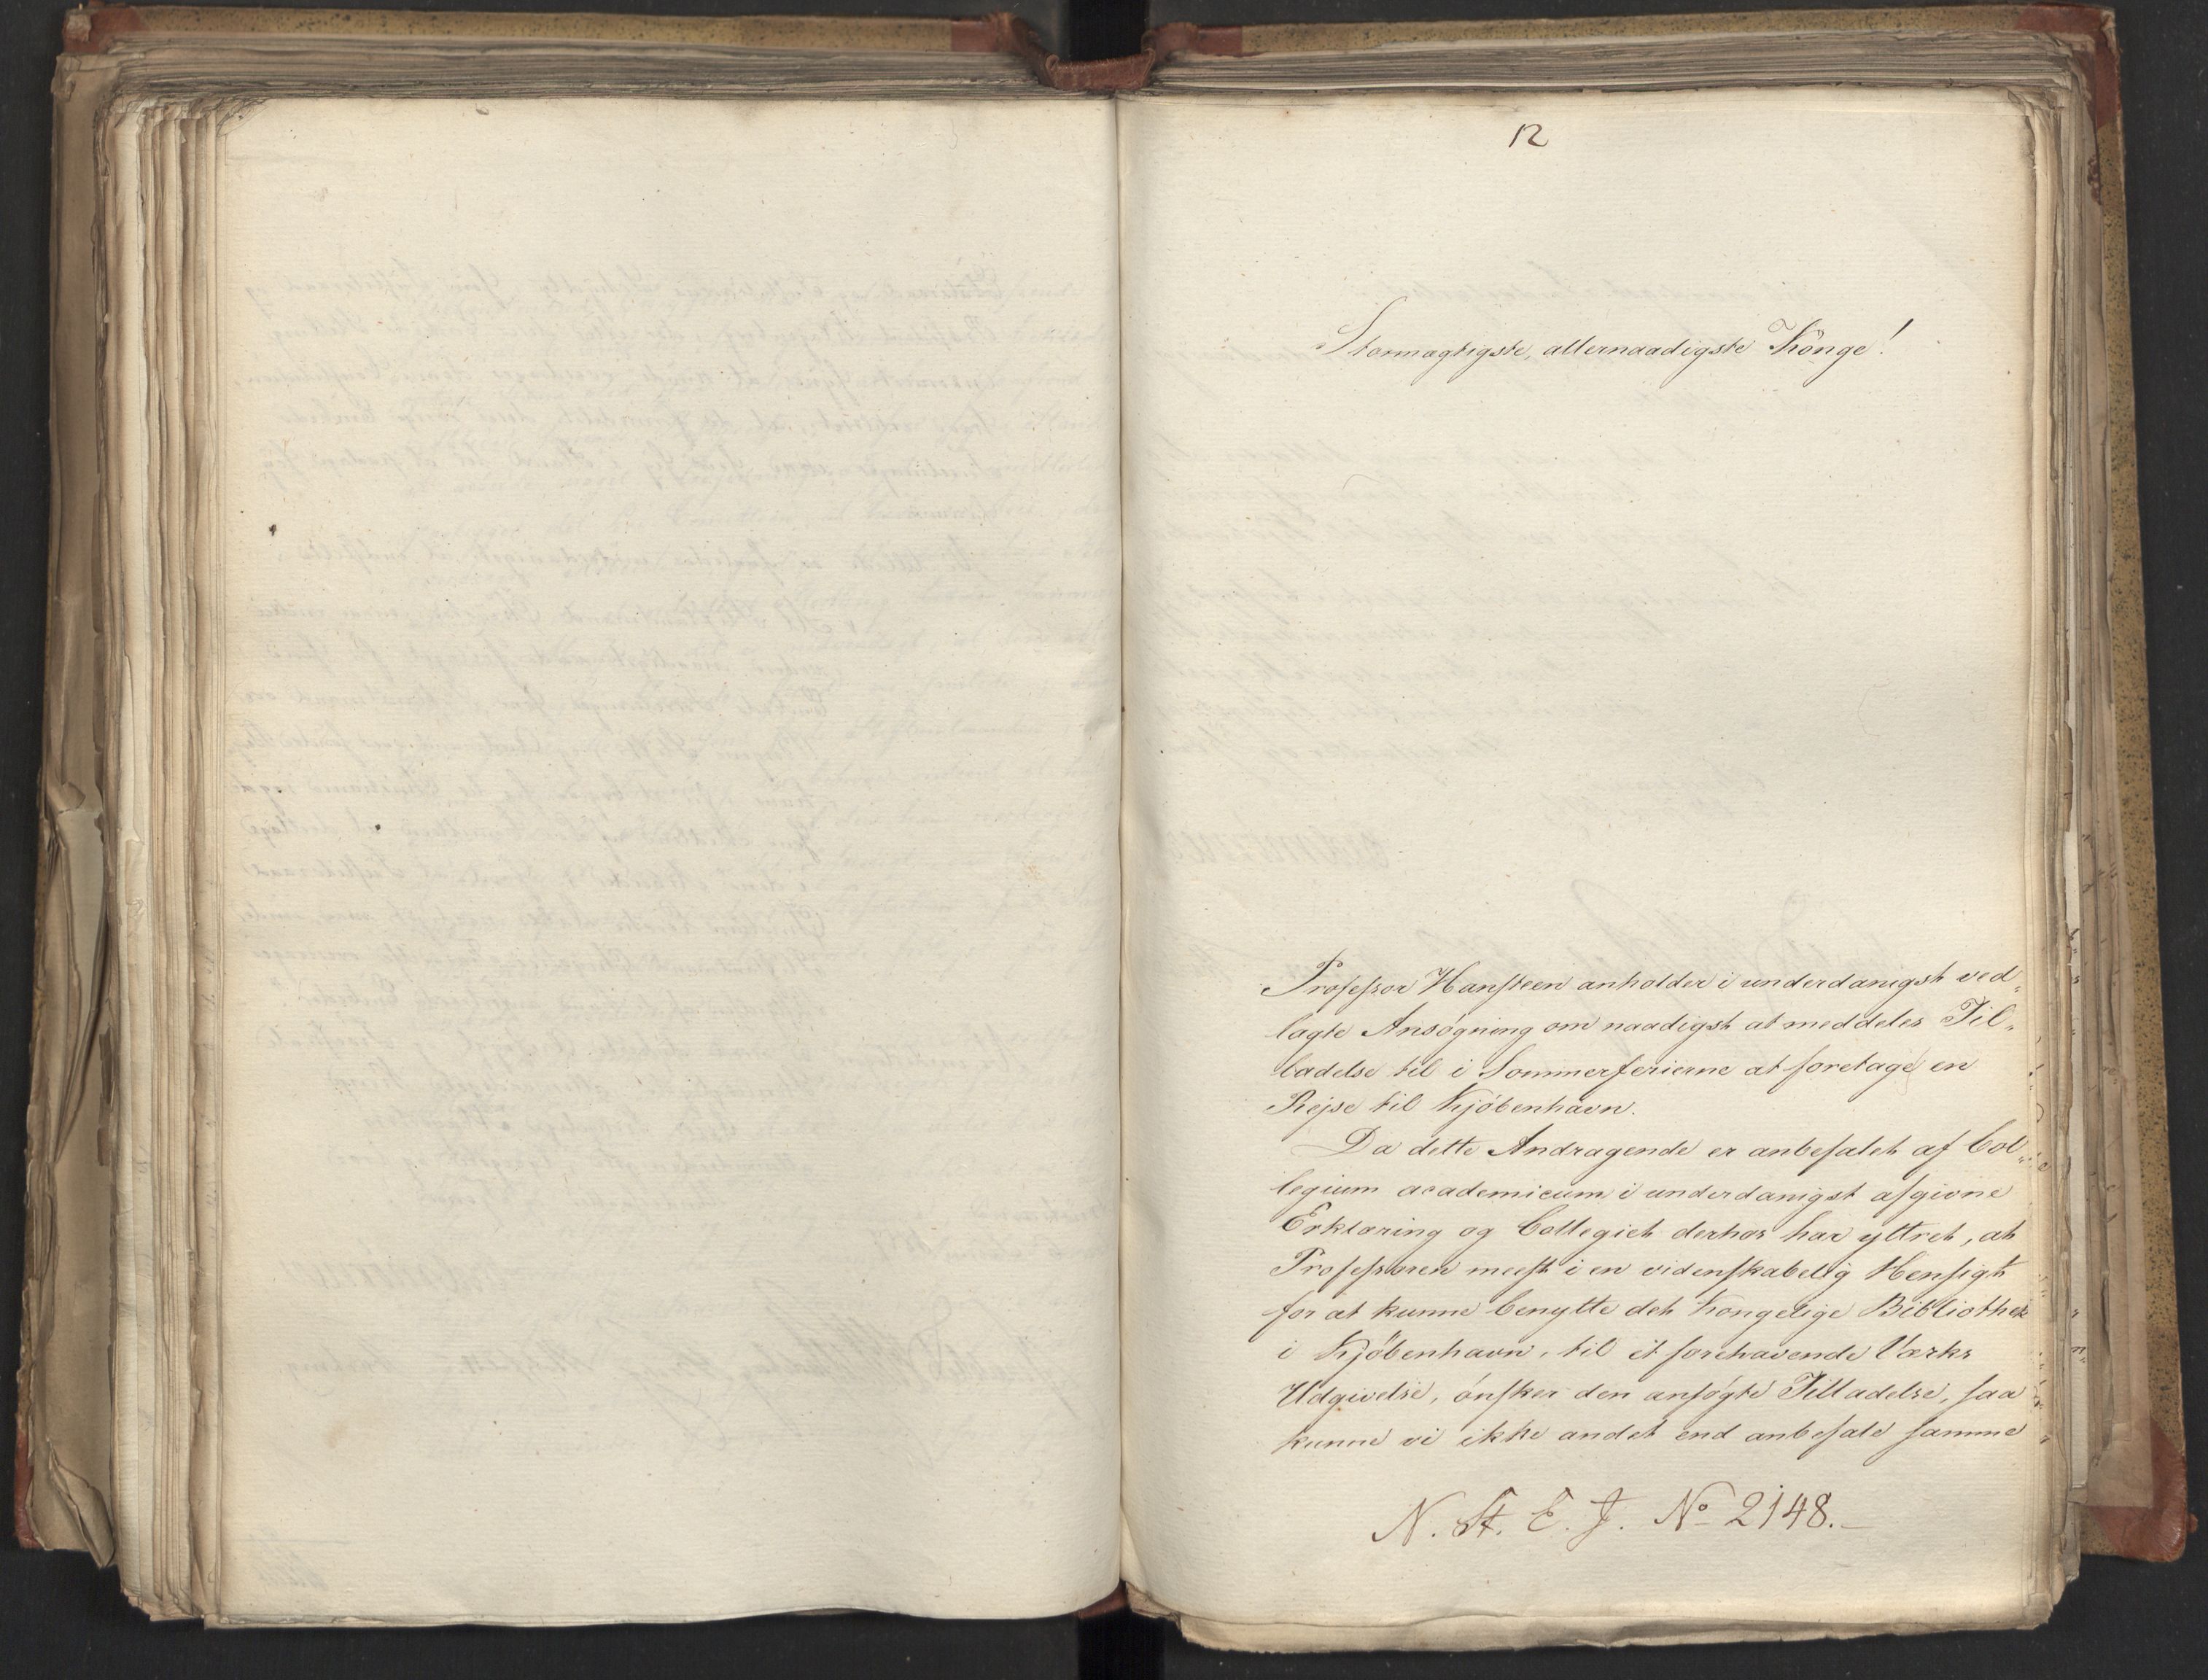 12
Stormægtigste, allernaadigste Konge!
Professor Hansteen anholder i underdanigst ved„
lagte Ansøgning om naadigst at meddeles Til„
ladelse til i Sommerferierne at foretage en
Rejse til Kjøbenhavn.
Da dette Andragende er anbefalet af Col„
legium academicum i underdanigst afgivne
Erklæring og Collegiet derhos har yttret, at
Professoren meest i en videnskabelig Hensigt
for at kunne benytte det kongelige Bibliothek
i Kjøbenhavn, til et forehavende Værks
Udgivelse, ønsker den ansøgte Tilladelse, saa
kunne vi ikke andet end anbefale samme
N. St. E. J. No 2148.-